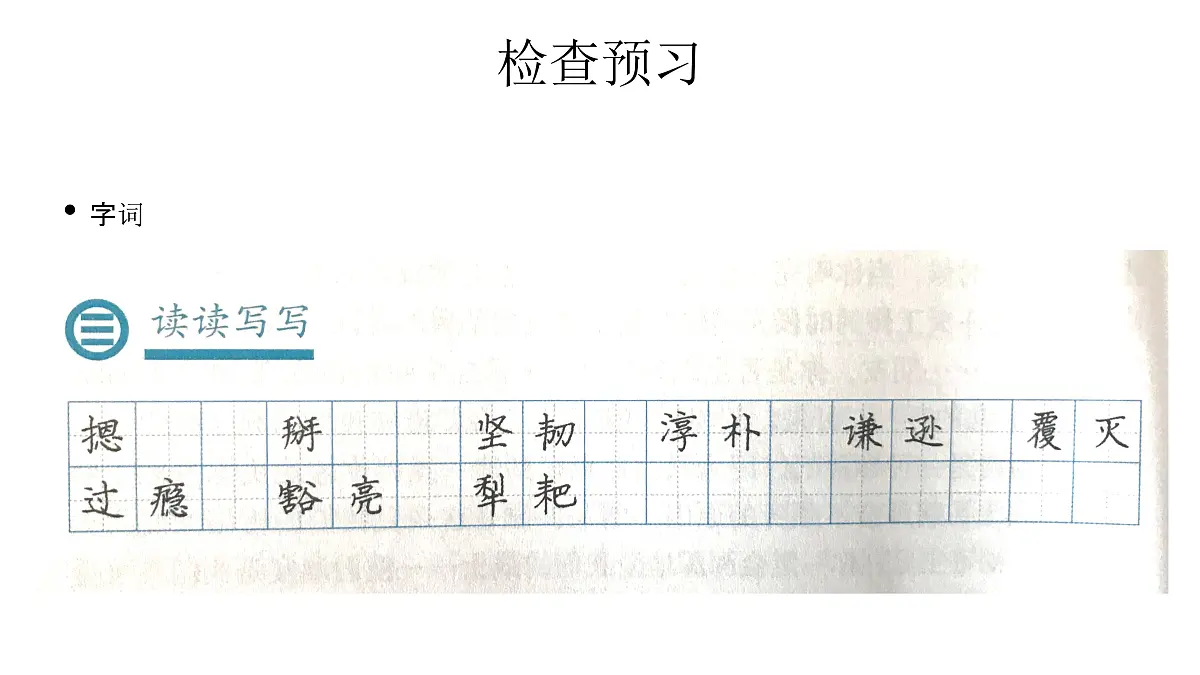 检查预习
• 字词
读读写写
摁 掰 坚韧 淳朴 谦逊 覆灭
过瘾 豁亮 犁耙